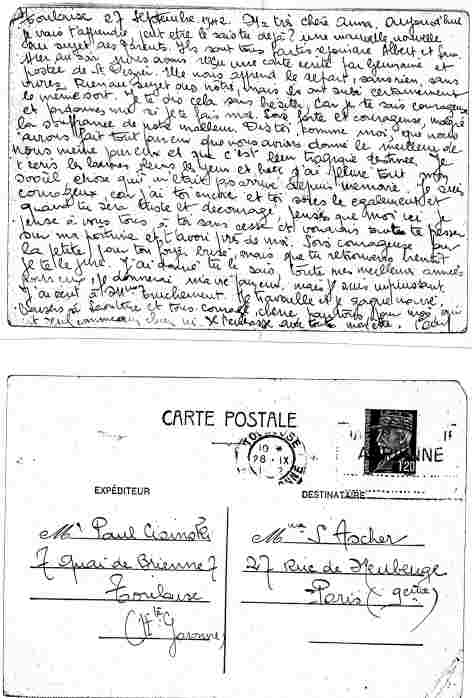 Toulouse 27 Septembre 1942 Ma très chère Anna, aujourd'hui
je vais t'apprendre, peut être le sais tu déjà? une mauvaise nouvelle
au sujet des Parents. Ils sont tous partis rejoindre Albert et
hier au soir nous avons reçu une carte écrite par Germaine et
postée de St Elle nous apprend le départ, sans rien, sans
vivres. Rien au sujet des nôtres, mais ils ont subi certainement
le même sort. Je te dis cela sans hésiter, car je te sais courageuse
et pardonnes moi si je te fais mal. Sois forte et courageuse, malgré
la souffrance de notre malheur. Dis toi, comme moi, que nous
avons fait tout pour eux que nous avions donné le meilleur de
nous même pour eux et que c'est leur tragique destinée. Je
t'écris les larmes pleins les yeux et hier j'ai pleuré tout mon
saoûl chose qui m'était pas arrivé depuis Je suis
courageux car j'ai toi encore et toi sois le également et
quand tu seras triste et découragé, penses que moi ici je
pense à vous tous à toi sans cesse et voudrais sentir te presser
sur ma poitrine et t'avoir près de moi. Sois courageuse pour
la petite, pour ton foyer brisé, mais que tu retrouveras bientôt
je te le jure. J'ai donné tu le sais, toute mes meilleurs années
pour eux, je donnerai ma vie pour eux, mais je suis impuissant
J'ai écrit à Je travaille et je gagne
Penses à et tous courage chérie pour moi, qui
est seul comme ici. Je t'embrasse
CARTE POSTALE
TOULOUSE
10
28 IX
GARONNE
1F20
EXPÉDITEUR
DESTINATAIRE
Mr Paul Cisinski
7 Quai de Brienne 7
Toulouse
(Hte Garonne)
Mme S Ascher
27 Rue de Maubeuge
Paris (9ème)